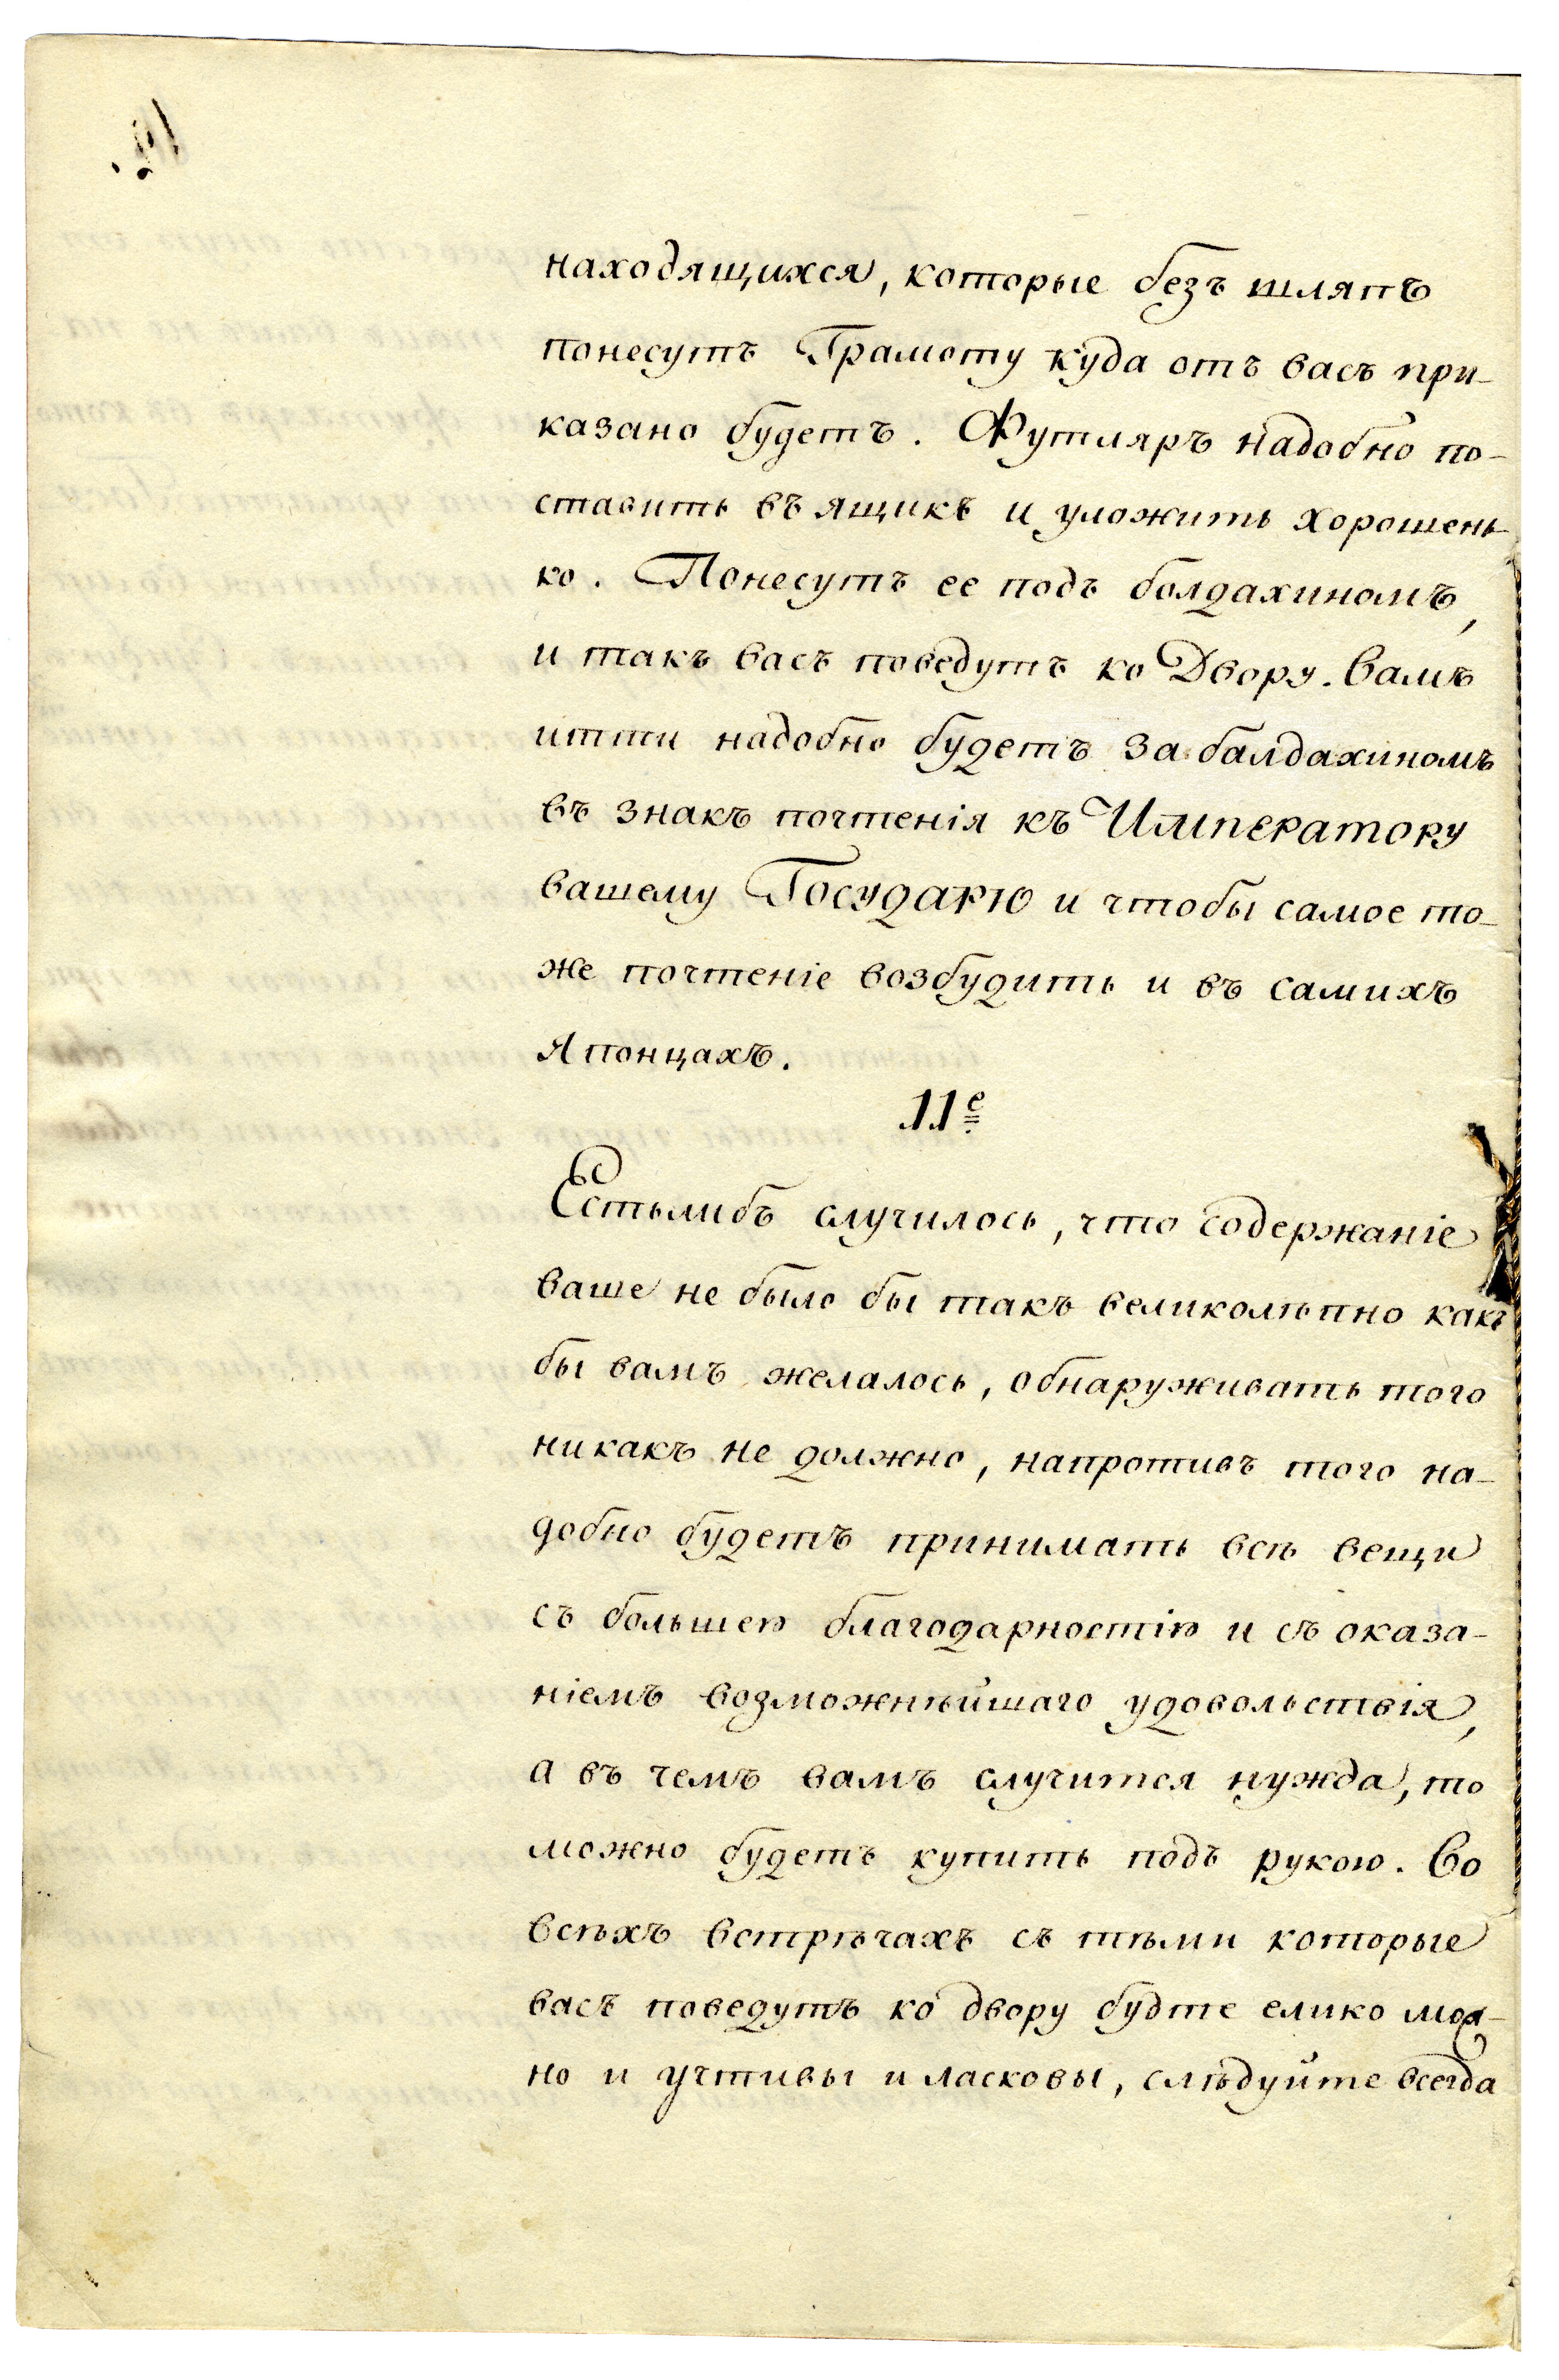 находящихся, которые безъ шляпъ
понесутъ Грамоту куда отъ васъ при-
казано будетъ. Футляръ надобно по-
ставить въ ящикъ и уложить хорошень-
ко. Понесутъ ее подъ болдахиномъ,
и такъ васъ поведутъ ко Двору. Вамъ
итти надобно будетъ за балдахиномъ
въ знакъ почтенія къ Императору
вашему Государю и чтобы самое то-
же почтеніе возбудить и въ самихъ
Японцахъ.
11е
Естьлибъ случилось, что содержаніе
ваше не было бы такъ великолѣпно какъ
бы вамъ желалось, обнаруживать того
никакъ не должно, напротивъ того на-
добно будетъ принимать всѣ вещи
съ большею благодарностію и съ оказа-
ніемъ возможнѣйшаго удовольствія,
а въ чемъ вамъ случится нужда, то
можно будетъ купить подъ рукою. Во
всѣхъ встрѣчахъ съ тѣми которые
васъ поведутъ ко двору будте елико мож-
но и учтивы и ласковы, слѣдуйте всегда